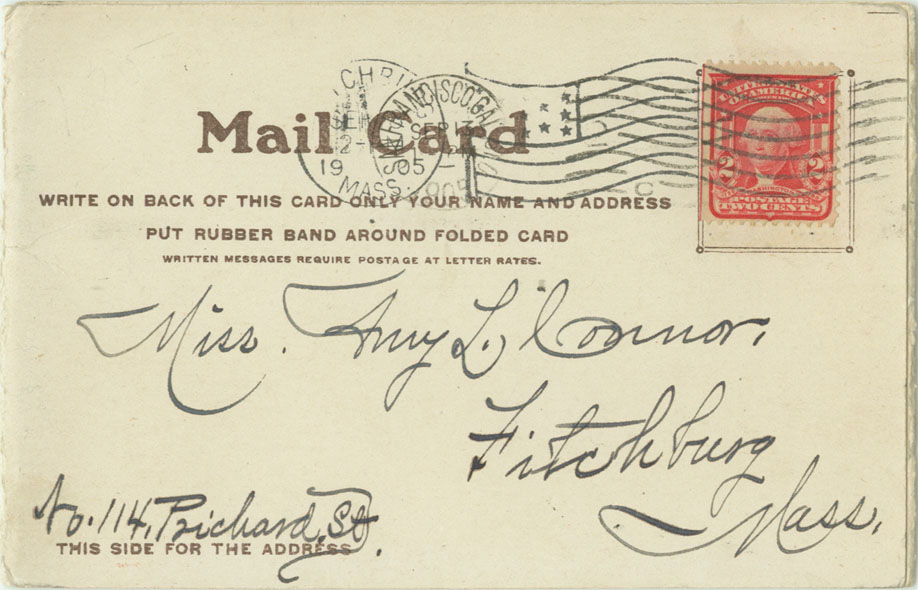 Mail Card
SAN FRANCISCO, CAL.
SEP
1905
MASS.
1905
UNITED STATES
OF AMERICA
2 2
POSTAGE
TWO CENTS
WRITE ON BACK OF THIS CARD ONLY YOUR NAME AND ADDRESS
PUT RUBBER BAND AROUND FOLDED CARD
WRITTEN MESSAGES REQUIRE POSTAGE AT LETTER RATES.
Miss. Amy L. O'Connor,
Fitchburg
Mass.
No. 114, Prichard, St.
THIS SIDE FOR THE ADDRESS